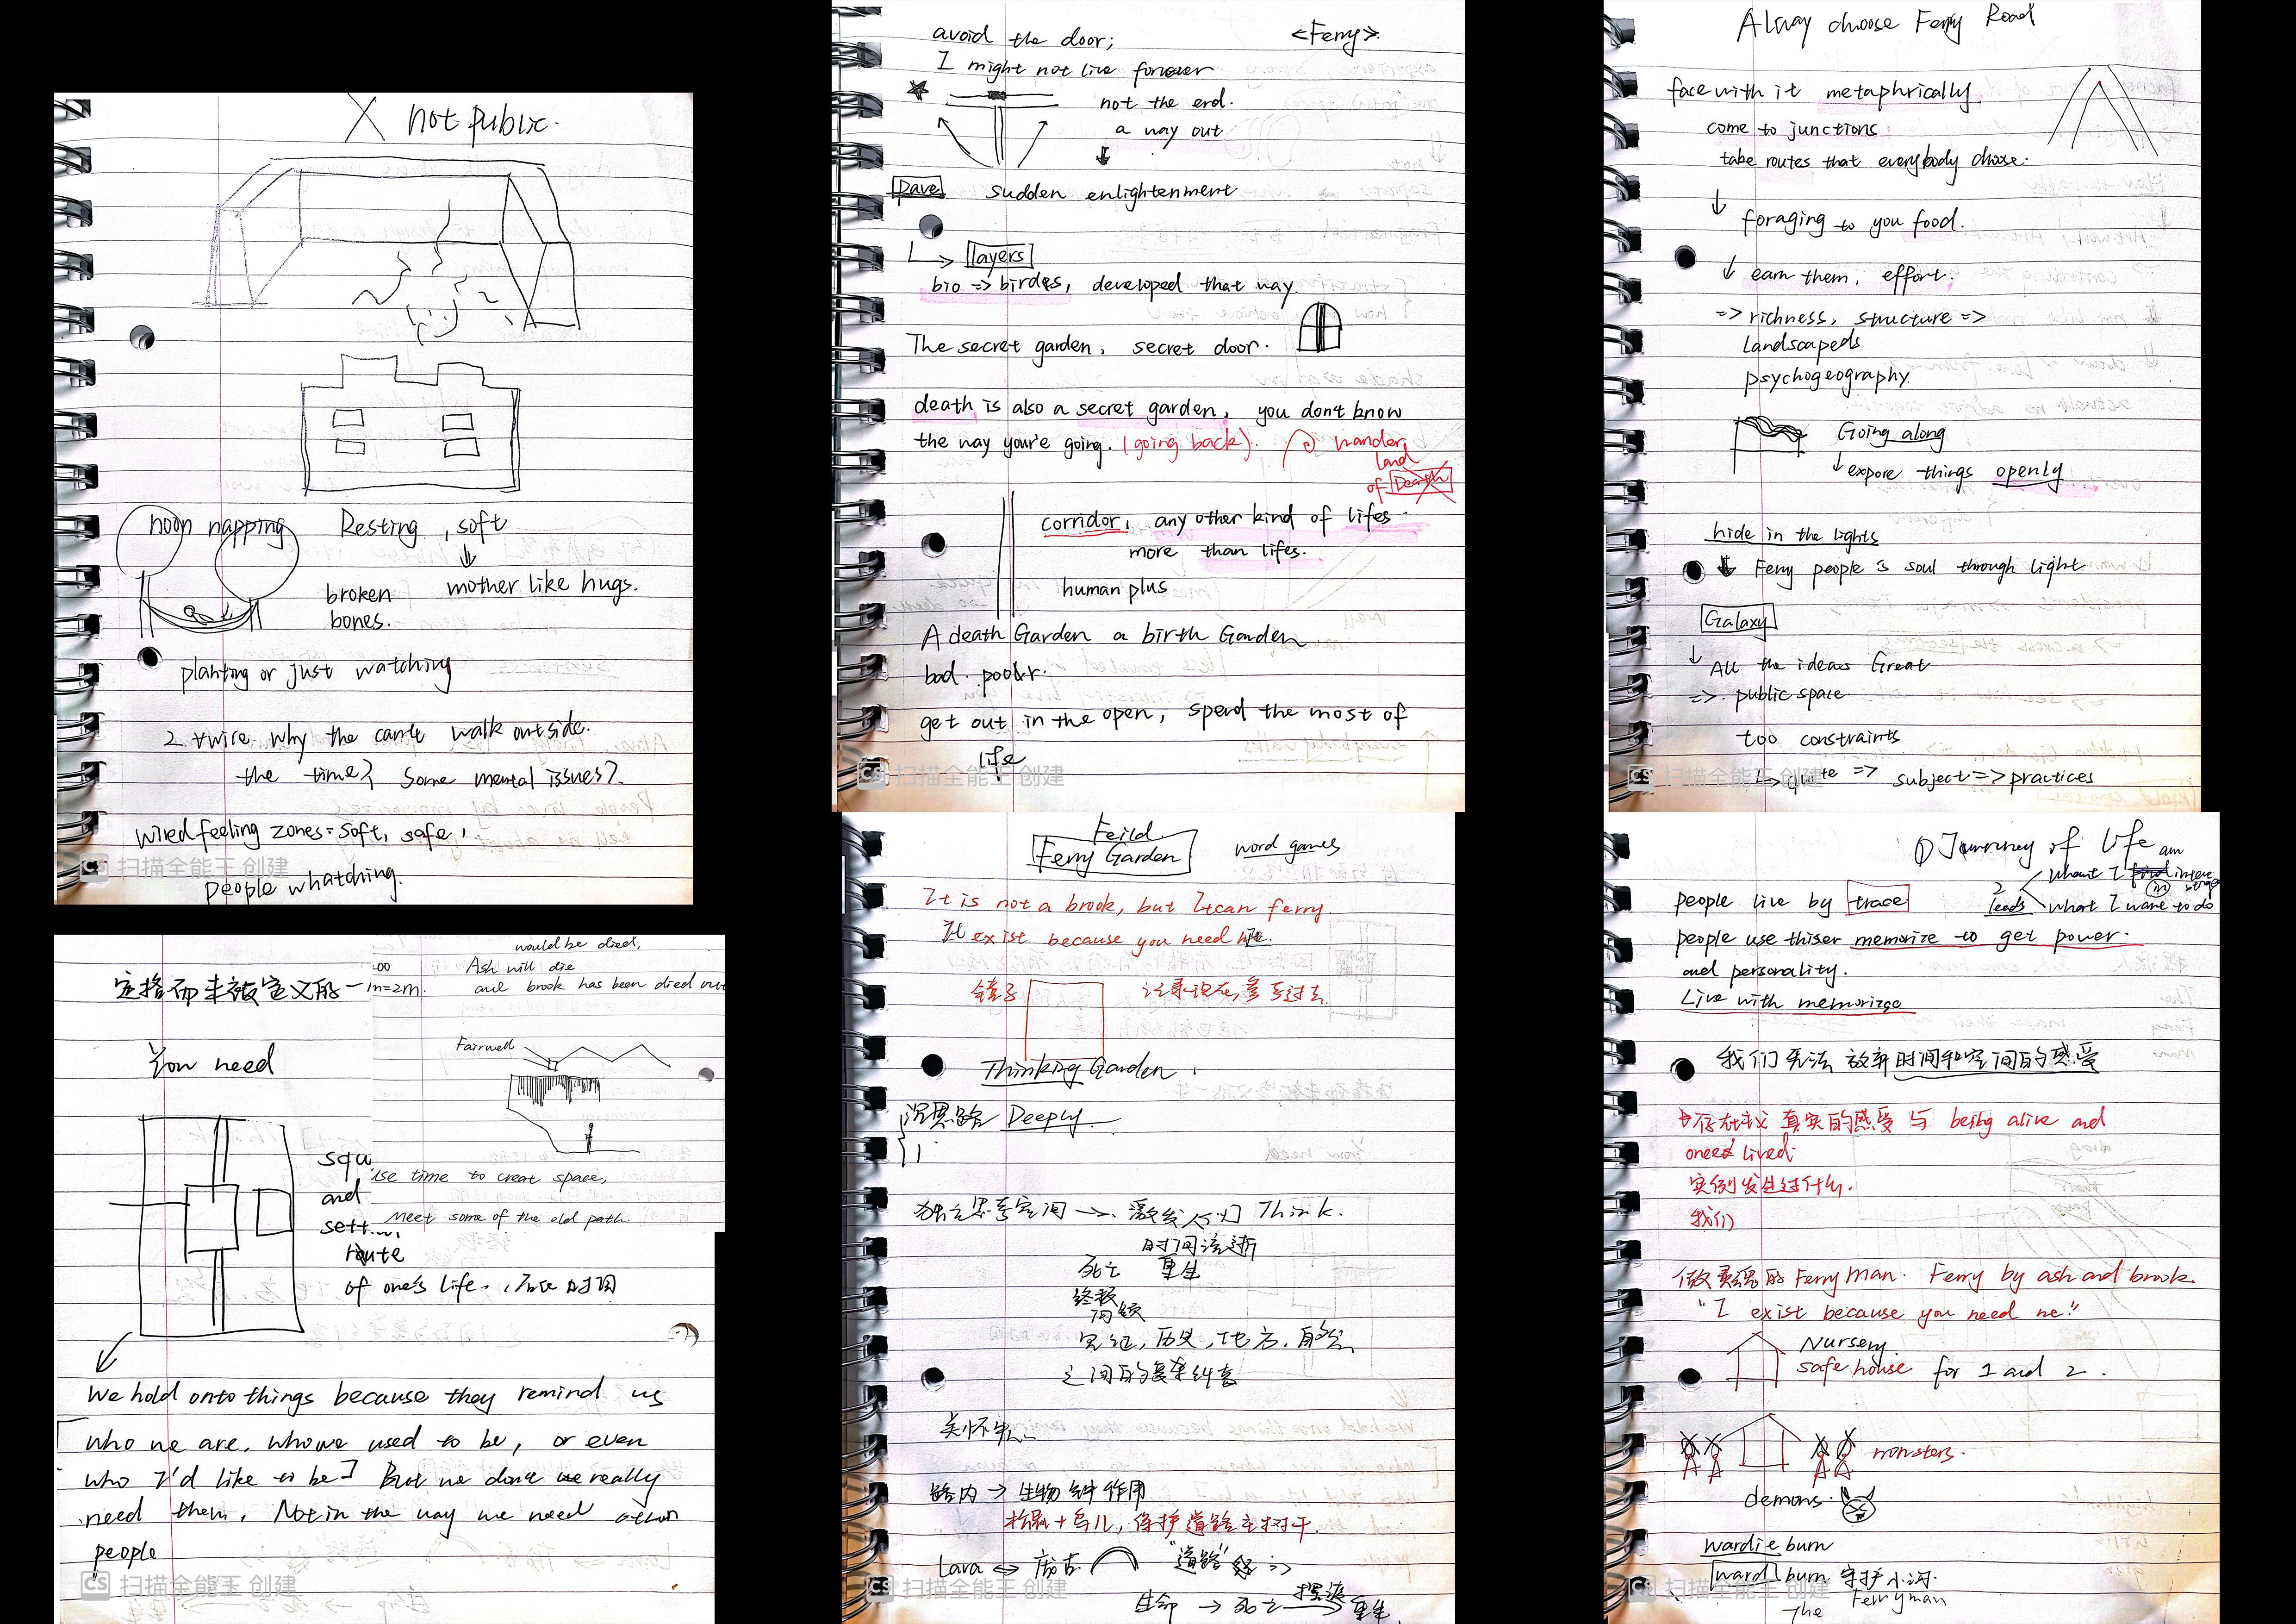 X not public.
noon napping
Resting, soft
mother like hugs.
broken
bones.
planting or just watching
2 twice why the can't walk outside.
the time? Some mental issues?
wired feeling zones = soft, safe,
people whatching.
CS 扫描全能王 创建
avoid the door; <Ferry>
I might not live forever
not the end.
a way out
pave sudden enlightenment
layers
bio => birdges, developed that way.
The secret garden, secret door.
death is also a secret garden, you don't know
the way you're going. (going back). wander
land
of Death
corridor, any other kind of lifes
more than lifes.
human plus
A death Garden a birth Garden
bad.
get out in the open, spend the most of
life
CS 扫描全能王 创建
Alway choose Ferry Road
face with it metaphrically.
come to junctions
take routes that everybody choose.
foraging to you food.
earn them, effort.
=> richness, structure =>
landscapeds
psychogeography.
Going along
expore things openly
hide in the lights
Ferry people is soul through light
Galaxy
All the ideas Great
=> public space.
too constraints
=> subject => practices
CS 扫描全能王 创建
定格而未被定义的一
You need
and
route
of one's life.
We hold onto things because they remind us
who we are, who we used to be, or even
who I'd like to be] But we don't we really
need them, Not in the way we need other
people
CS 扫描全能王 创建
would be died,
1m=2m.
Ash will die
and brook has been died
Fairwell
use time to creat space,
Meet some of the old path.
Feild
Ferry Garden word games
It is not a brook, but It can ferry.
It exist because you need
镜子 记录现在,参考过去
Thinking Garden,
沉思路 Deeply
独立思考空间 → 激发人们 Think.
时间流逝
死亡 重生
之间的复杂纠葛
关怀
路内 → 生物钟作用
松鼠+鸟儿, 保护道路主树干.
Lava
"道路"
生命 → 死亡 → 重生
CS 扫描全能王 创建
① Journey of Life
people live by trace
2 leads
what I am in
what I want to do
people use thiser memorize to get power.
and personality.
Live with memorize
我们无法放弃时间和空间的感受
存在主义 真实的感受与 being alive and
once lived.
实例发生过什么.
我们
做灵魂的 Ferryman. Ferry by ash and brook.
"I exist because you need me."
Nursery.
safe house for 1 and 2.
monsters.
demons.
wardie burn
ward burn 守护小河.
The Ferryman
CS 扫描全能王 创建